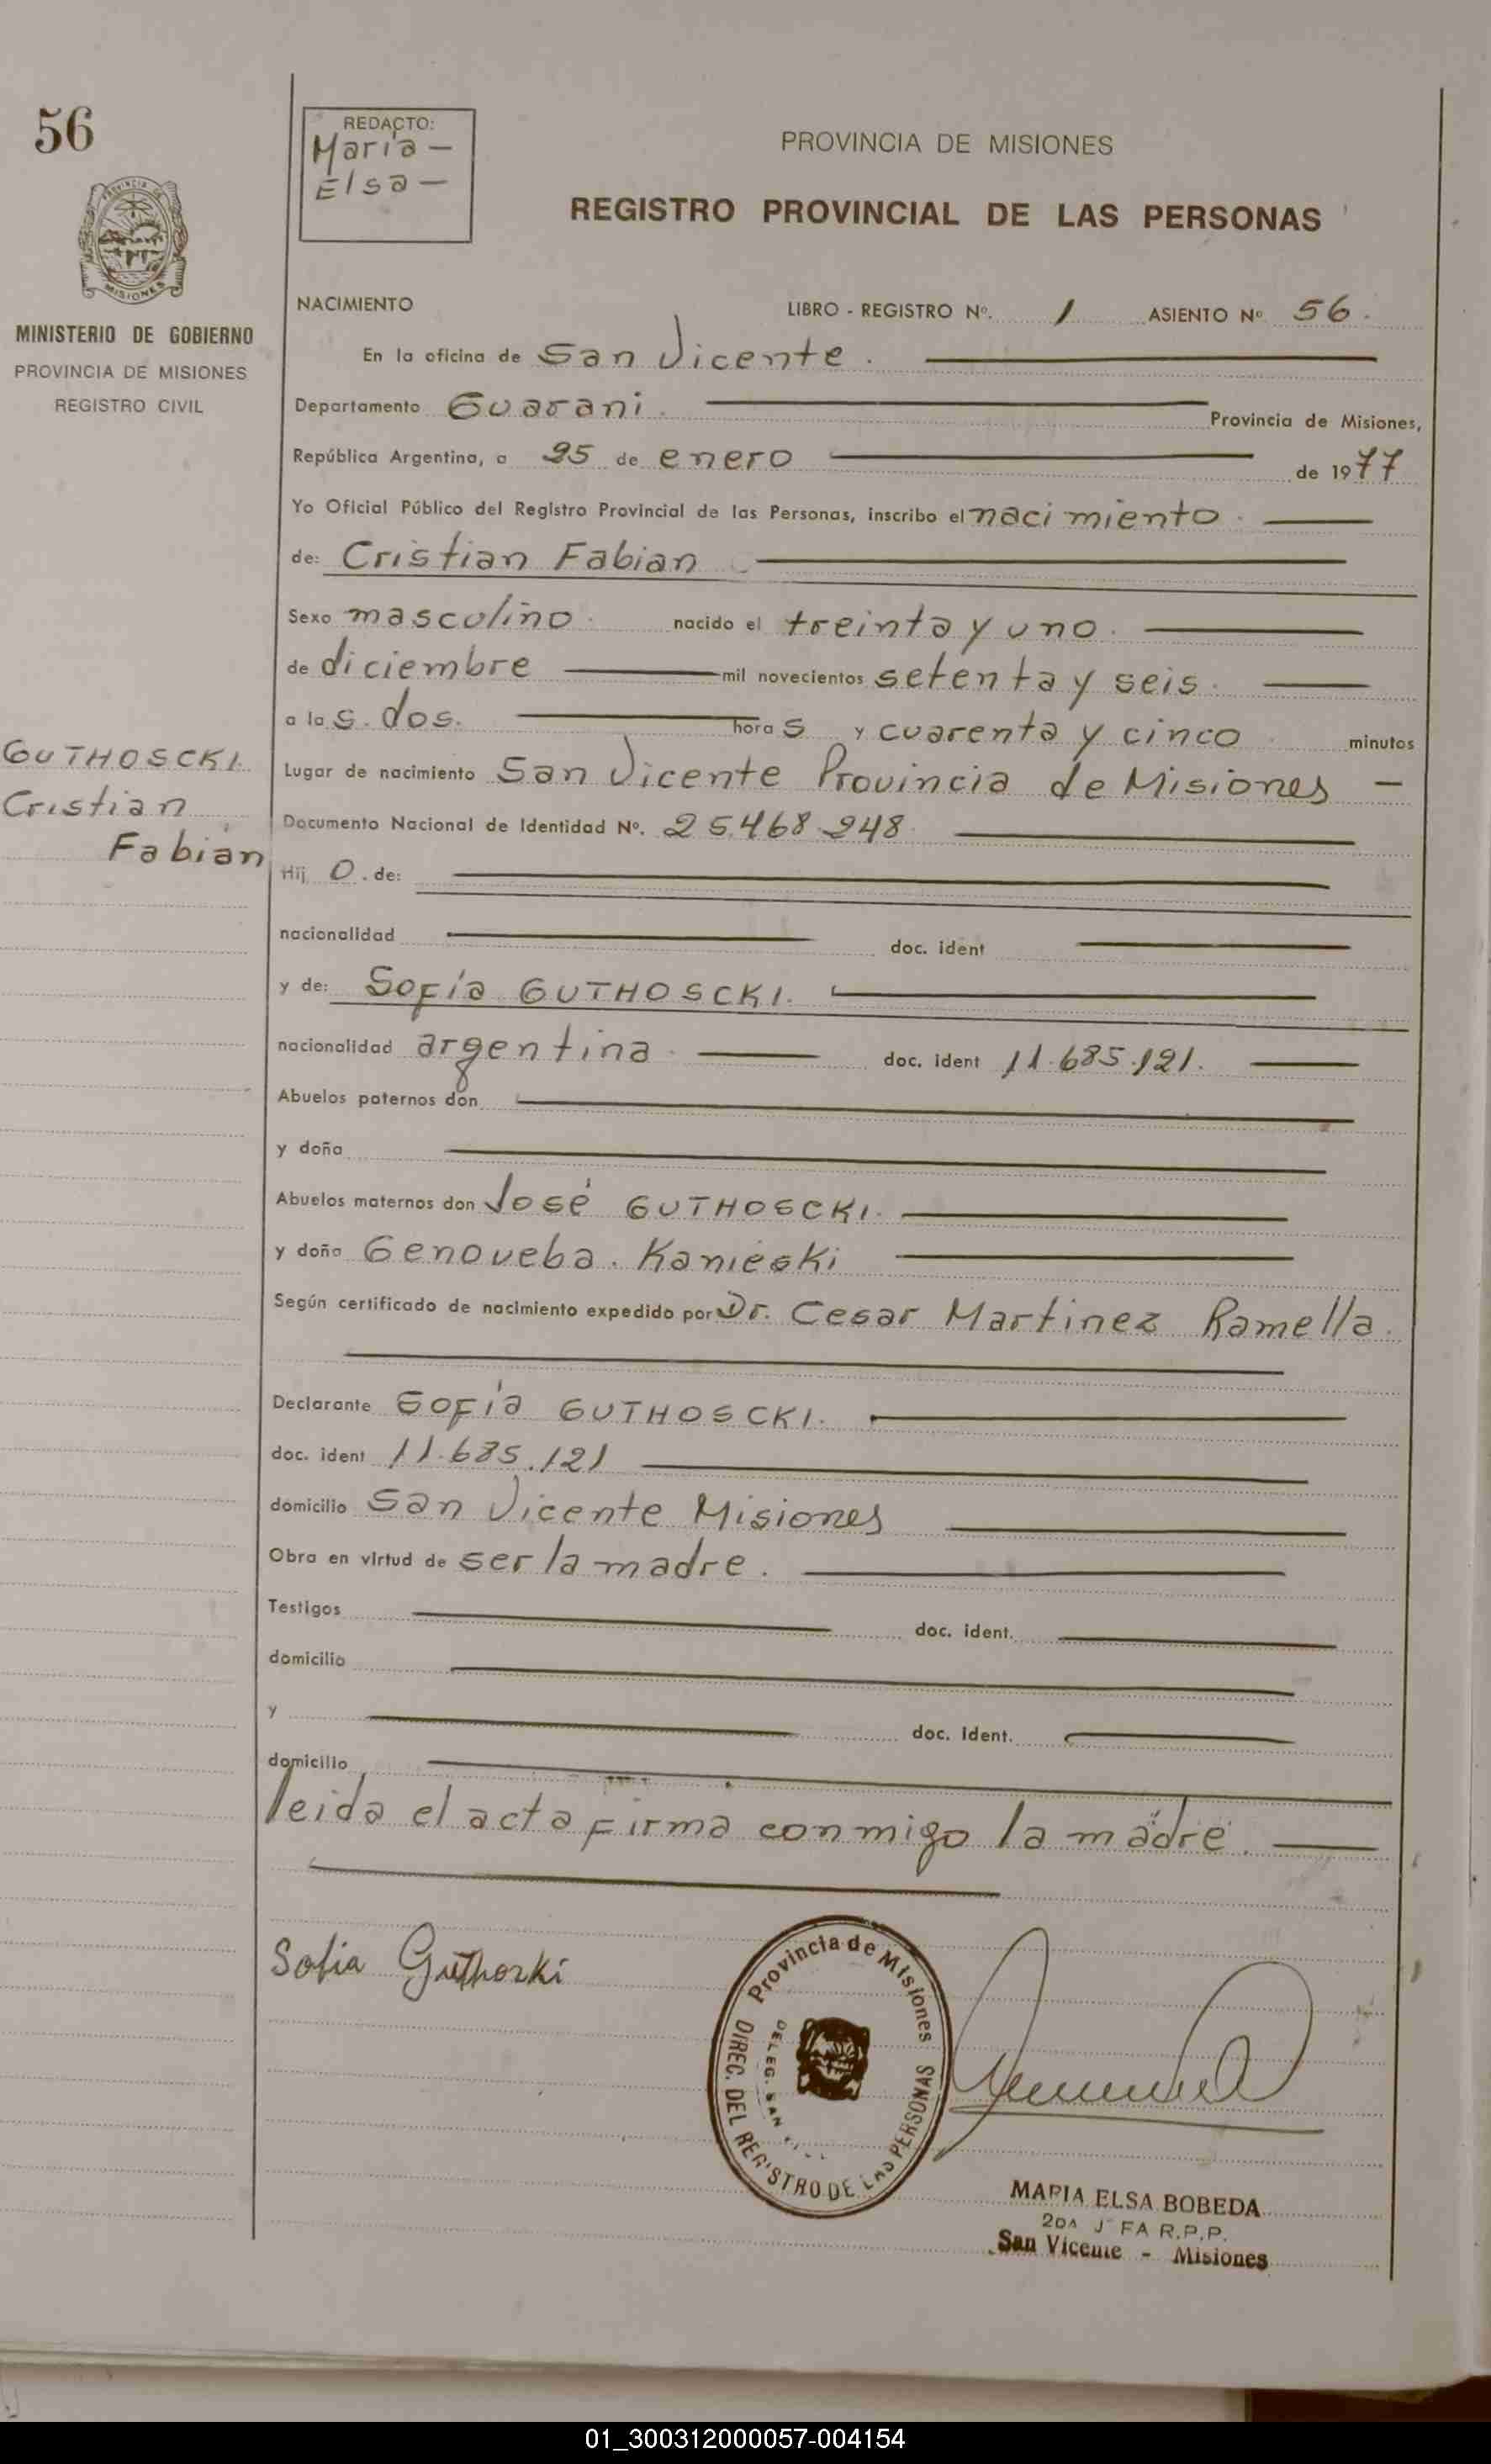 56
REDACTO:
María –
Elsa –
PROVINCIA DE MISIONES
REGISTRO PROVINCIAL DE LAS PERSONAS
PROVINCIA DE
MISIONES
MINISTERIO DE GOBIERNO
PROVINCIA DE MISIONES
REGISTRO CIVIL
NACIMIENTO LIBRO - REGISTRO Nº. 1 ASIENTO Nº 56.
En la oficina de San Vicente.
Departamento Guarani. Provincia de Misiones,
República Argentina, a 25 de enero de 1977
Yo Oficial Público del Registro Provincial de las Personas, inscribo el nacimiento.
de: Cristian Fabian
Sexo masculino. nacido el treinta y uno.
de diciembre mil novecientos setenta y seis.
a las. dos. horas y cuarenta y cinco minutos
GUTHOSCKI.
Cristian
Fabián
Lugar de nacimiento San Vicente Provincia de Misiones –
Documento Nacional de Identidad Nº. 25.468.248
Hij O. de:
nacionalidad doc. ident
y de: Sofía GUTHOSCKI.
nacionalidad argentina. doc. ident 11.685.121.
Abuelos paternos don
y doña
Abuelos maternos don José GUTHOSCKI.
y doña Genoveba. Kanieski
Según certificado de nacimiento expedido por Dr. Cesar Martinez Ramella.
Declarante Sofía GUTHOSCKI.
doc. ident 11.685.121
domicilio San Vicente Misiones
Obra en virtud de ser la madre.
Testigos doc. ident.
domicilio
y doc. ident.
domicilio
leida el acta firma conmigo la madre.
Sofia Guthoski
Provincia de Misiones
DIREC. DEL REGISTRO DE LAS PERSONAS
DELEG. SAN
MARIA ELSA BOBEDA
2DA JEFA R.P.P.
San Vicente - Misiones
01_300312000057-004154